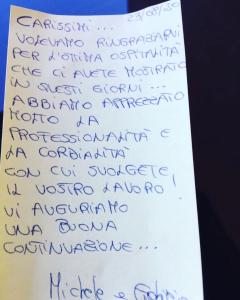 CARISSIMI...
VOLEVAMO RINGRAZIARVI
PER L'OTTIMA OSPITALITÀ
CHE CI AVETE MOSTRATO
IN QUESTI GIORNI...
ABBIAMO APPREZZATO
MOLTO LA
PROFESSIONALITÀ E
LA CORDIALITÀ
CON CUI SVOLGETE
IL VOSTRO LAVORO!
VI AUGURIAMO
UNA BUONA
CONTINUAZIONE...
Michele e